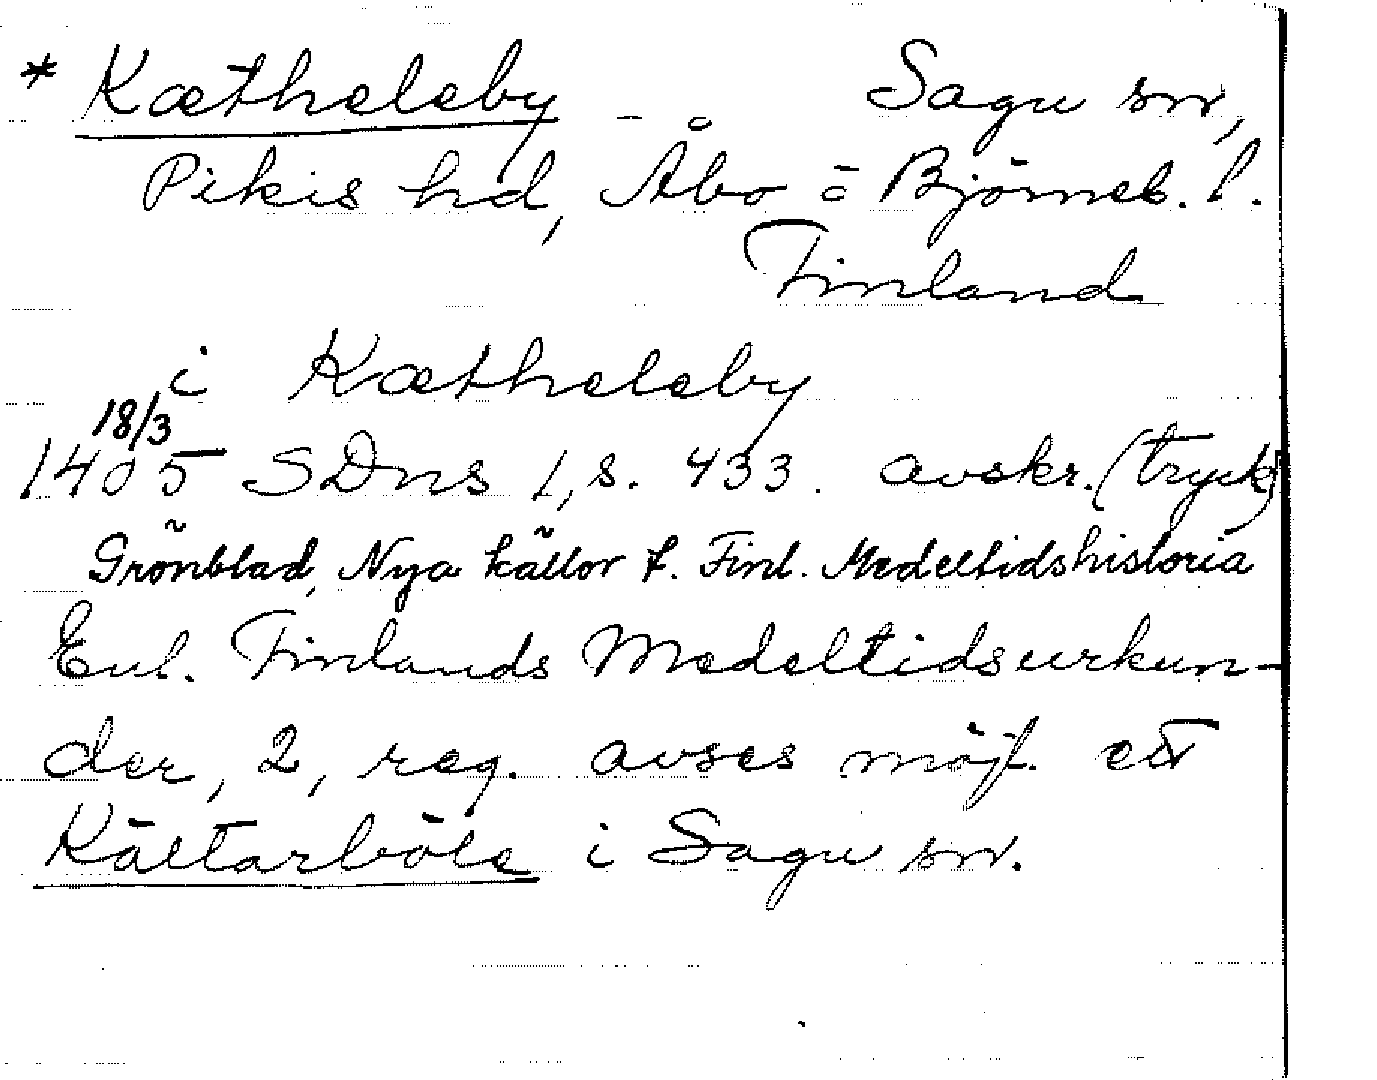 * Kætheleby Sagu srr,
Pikis hd, Åbo o Björneb. l.
Finland
i Kætheleby
18/3
1405 SDns 1, s. 433. avskr. (tryck)
Grönblad, Nya källor t. Finl. Medeltidshistoria
Enl. Finlands Medeltidsurkun-
der, 2, reg. avses möjl. ett
Kättarböle i Sagu srr.